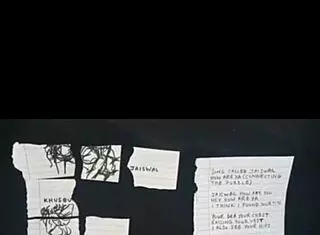 JAISWAL
KHUSBU
SONG CALLED JAISWAL
HOW ARE YA (CONNECTING
THE PUZZLE)
JAISWAL HOW ARE YOU
HEY HOW ARE YA
I THINK I FOUND
YOUR
I ALSO SEE YOUR HIPS